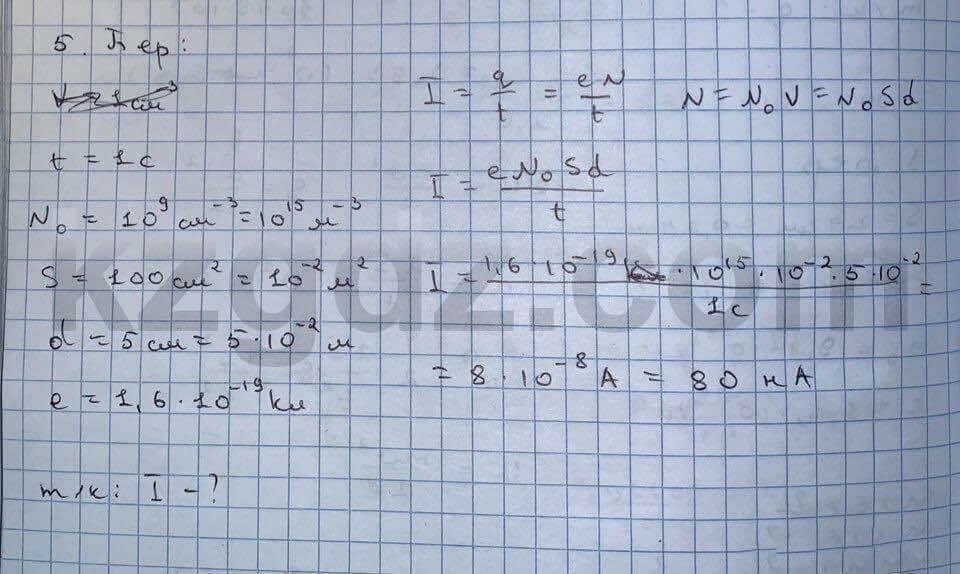 5. Бер:
V = 1 см³
t = 1 с
N₀ = 10⁹ см⁻³ = 10¹⁵ м⁻³
S = 100 см² = 10⁻² м²
d = 5 см = 5·10⁻² м
e = 1,6·10⁻¹⁹ Кл
т/к: I - ?
I = q/t = eN/t N = N₀V = N₀Sd
I = eN₀Sd/t
I = 1,6·10⁻¹⁹ ·10¹⁵·10⁻²·5·10⁻²/1с =
= 8·10⁻⁸ А = 80 нА
kzgdz.com